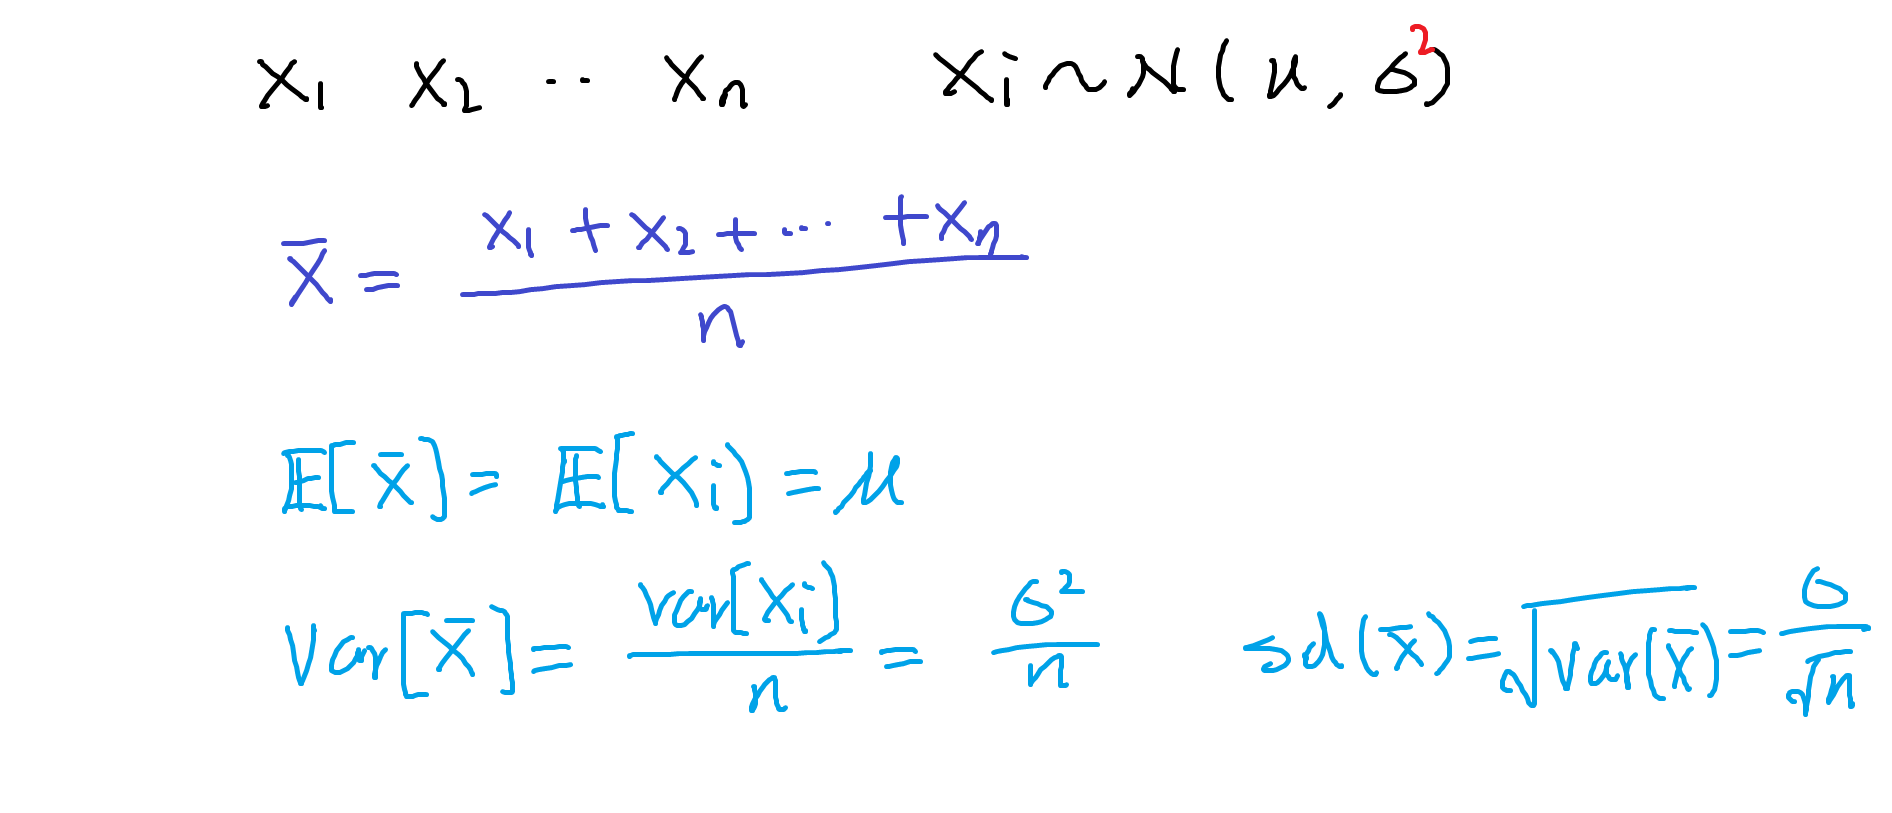 X₁ X₂ ·· Xₙ Xi ~ N(μ, σ²)
X̄ = (X₁ + X₂ + ··· + Xₙ) / n
𝔼[X̄] = 𝔼[Xi] = μ
Var[X̄] = Var[Xi] / n = σ² / n sd(X̄) = √Var(X̄) = σ / √n